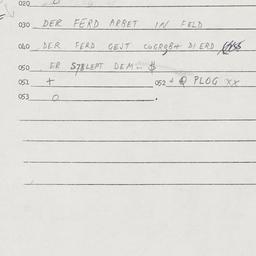 020 o
030 DER FERD ARBET IN FELD
040 DER FERD GEJT DIERD
050 ER DEM
051 +
052 + PLOG xx
053 o